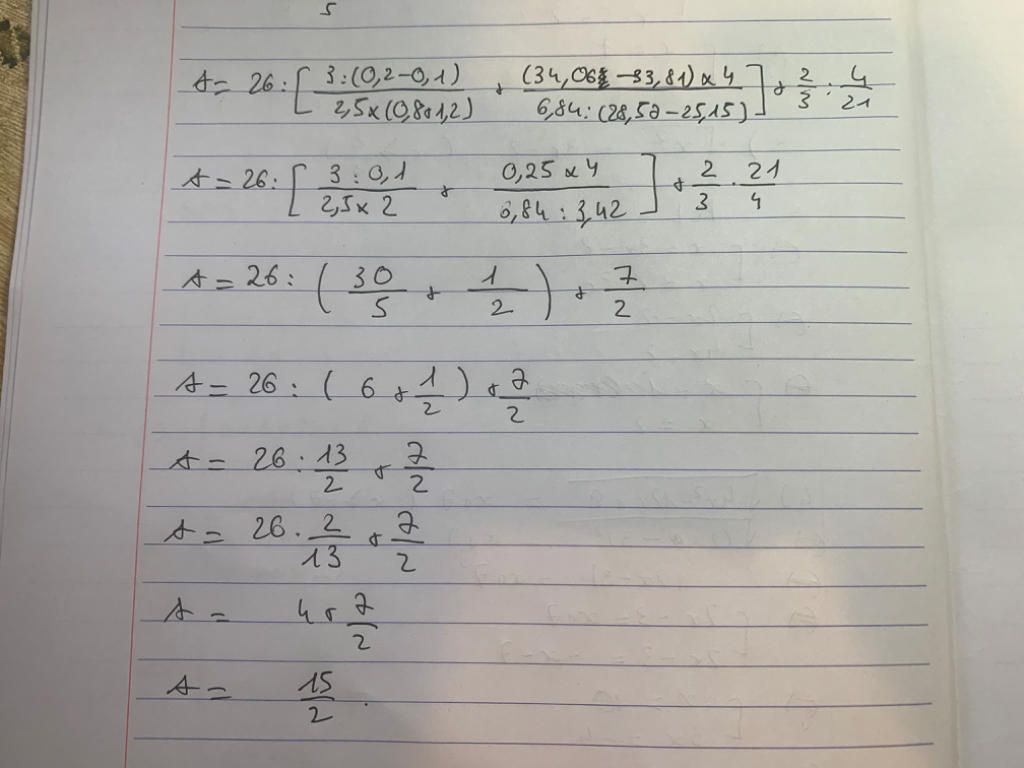 5
A = 26 : [ \frac{3 : (0,2 - 0,1)}{2,5 x (0,8 + 1,2)} + \frac{(34,06 - 33,81) x 4}{6,84 : (28,57 - 25,15)} ] + \frac{2}{3} : \frac{4}{21}
A = 26 : [ \frac{3 : 0,1}{2,5 x 2} + \frac{0,25 x 4}{6,84 : 3,42} ] + \frac{2}{3} . \frac{21}{4}
A = 26 : ( \frac{30}{5} + \frac{1}{2} ) + \frac{7}{2}
A = 26 : ( 6 + \frac{1}{2} ) + \frac{7}{2}
A = 26 : \frac{13}{2} + \frac{7}{2}
A = 26 . \frac{2}{13} + \frac{7}{2}
A = 4 + \frac{7}{2}
A = \frac{15}{2} .